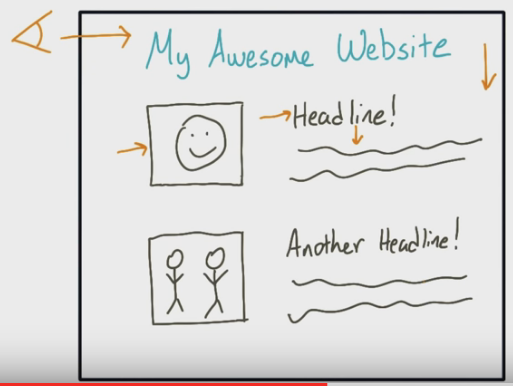 My Awesome Website
Headline!
Another Headline!